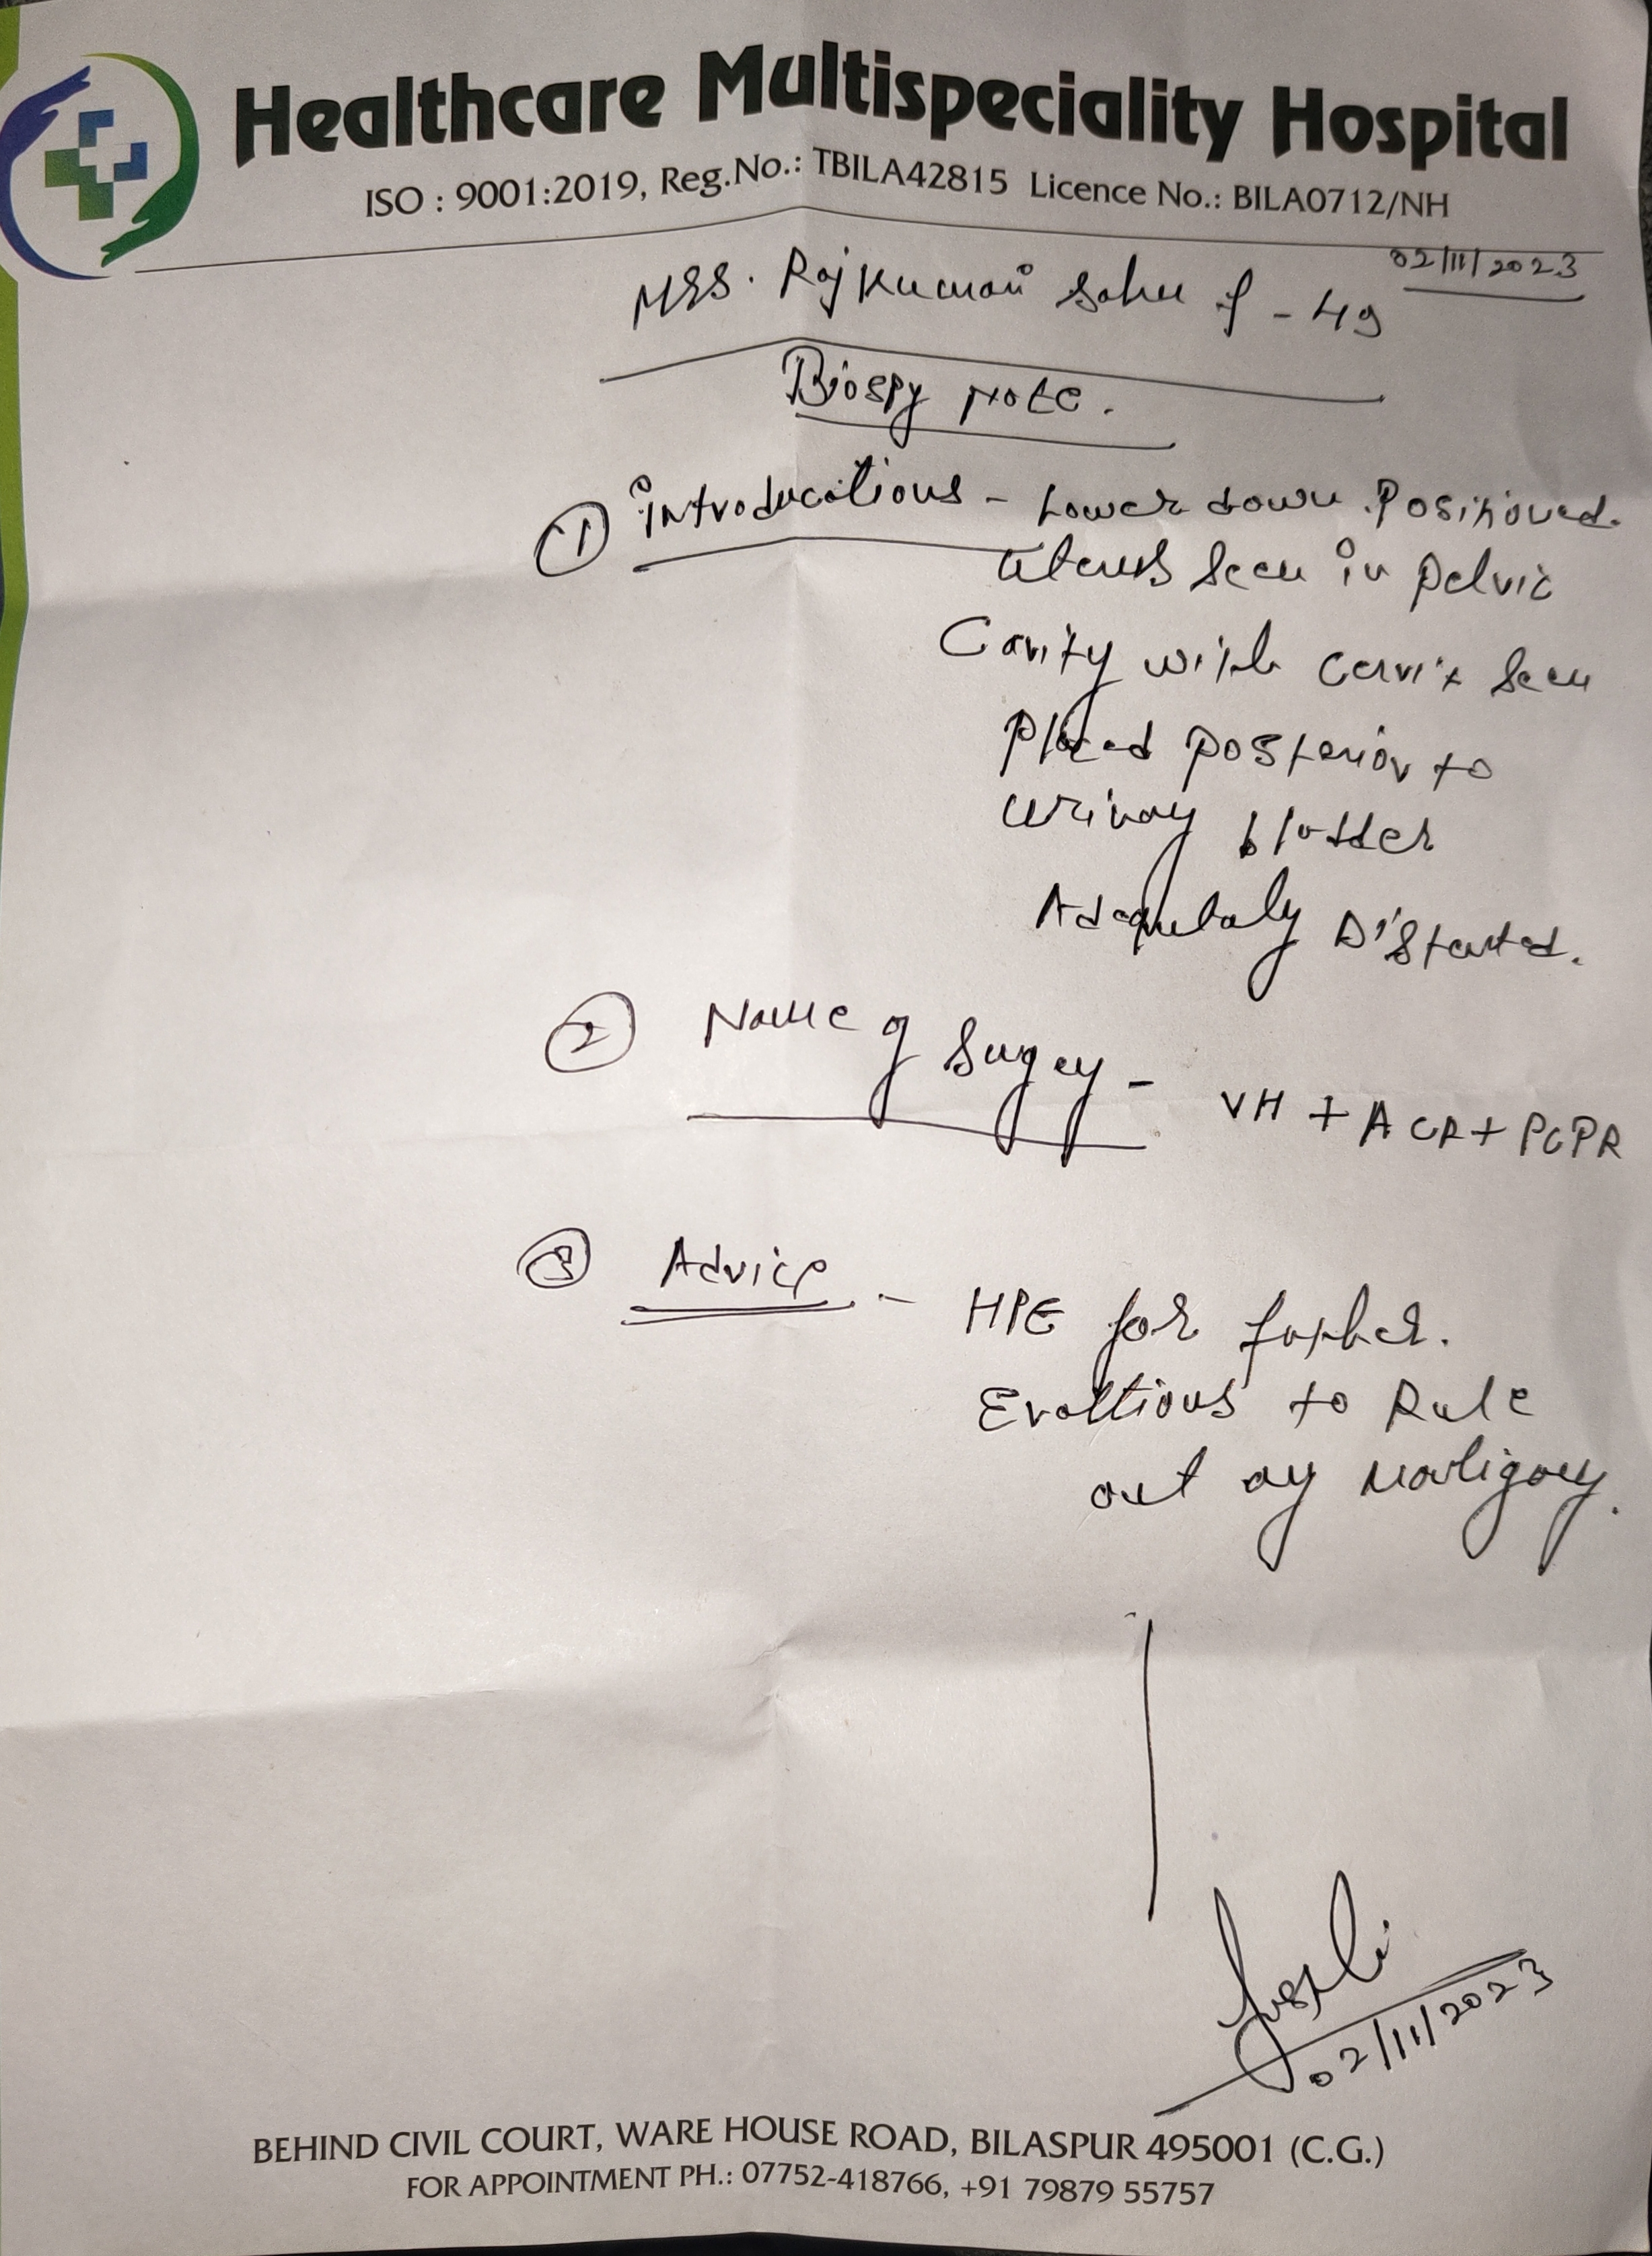 Healthcare Multispeciality Hospital
ISO : 9001:2019, Reg.No.: TBILA42815 Licence No.: BILA0712/NH
02/11/2023
MRS. Rajkumari Sahu f - 49
Biospy Note.
① introducations - Lower down Positioned.
uterus seen in pelvic
Cavity with cervix seen
Placed posterior to
urinay bladder
Adequtaly Distanted.
② Name of Sugey - VH + ACR + PCPR
③ Advice - HPE for further.
Evaltions to Rule
out ay maligacy.
02/11/2023
BEHIND CIVIL COURT, WARE HOUSE ROAD, BILASPUR 495001 (C.G.)
FOR APPOINTMENT PH.: 07752-418766, +91 79879 55757